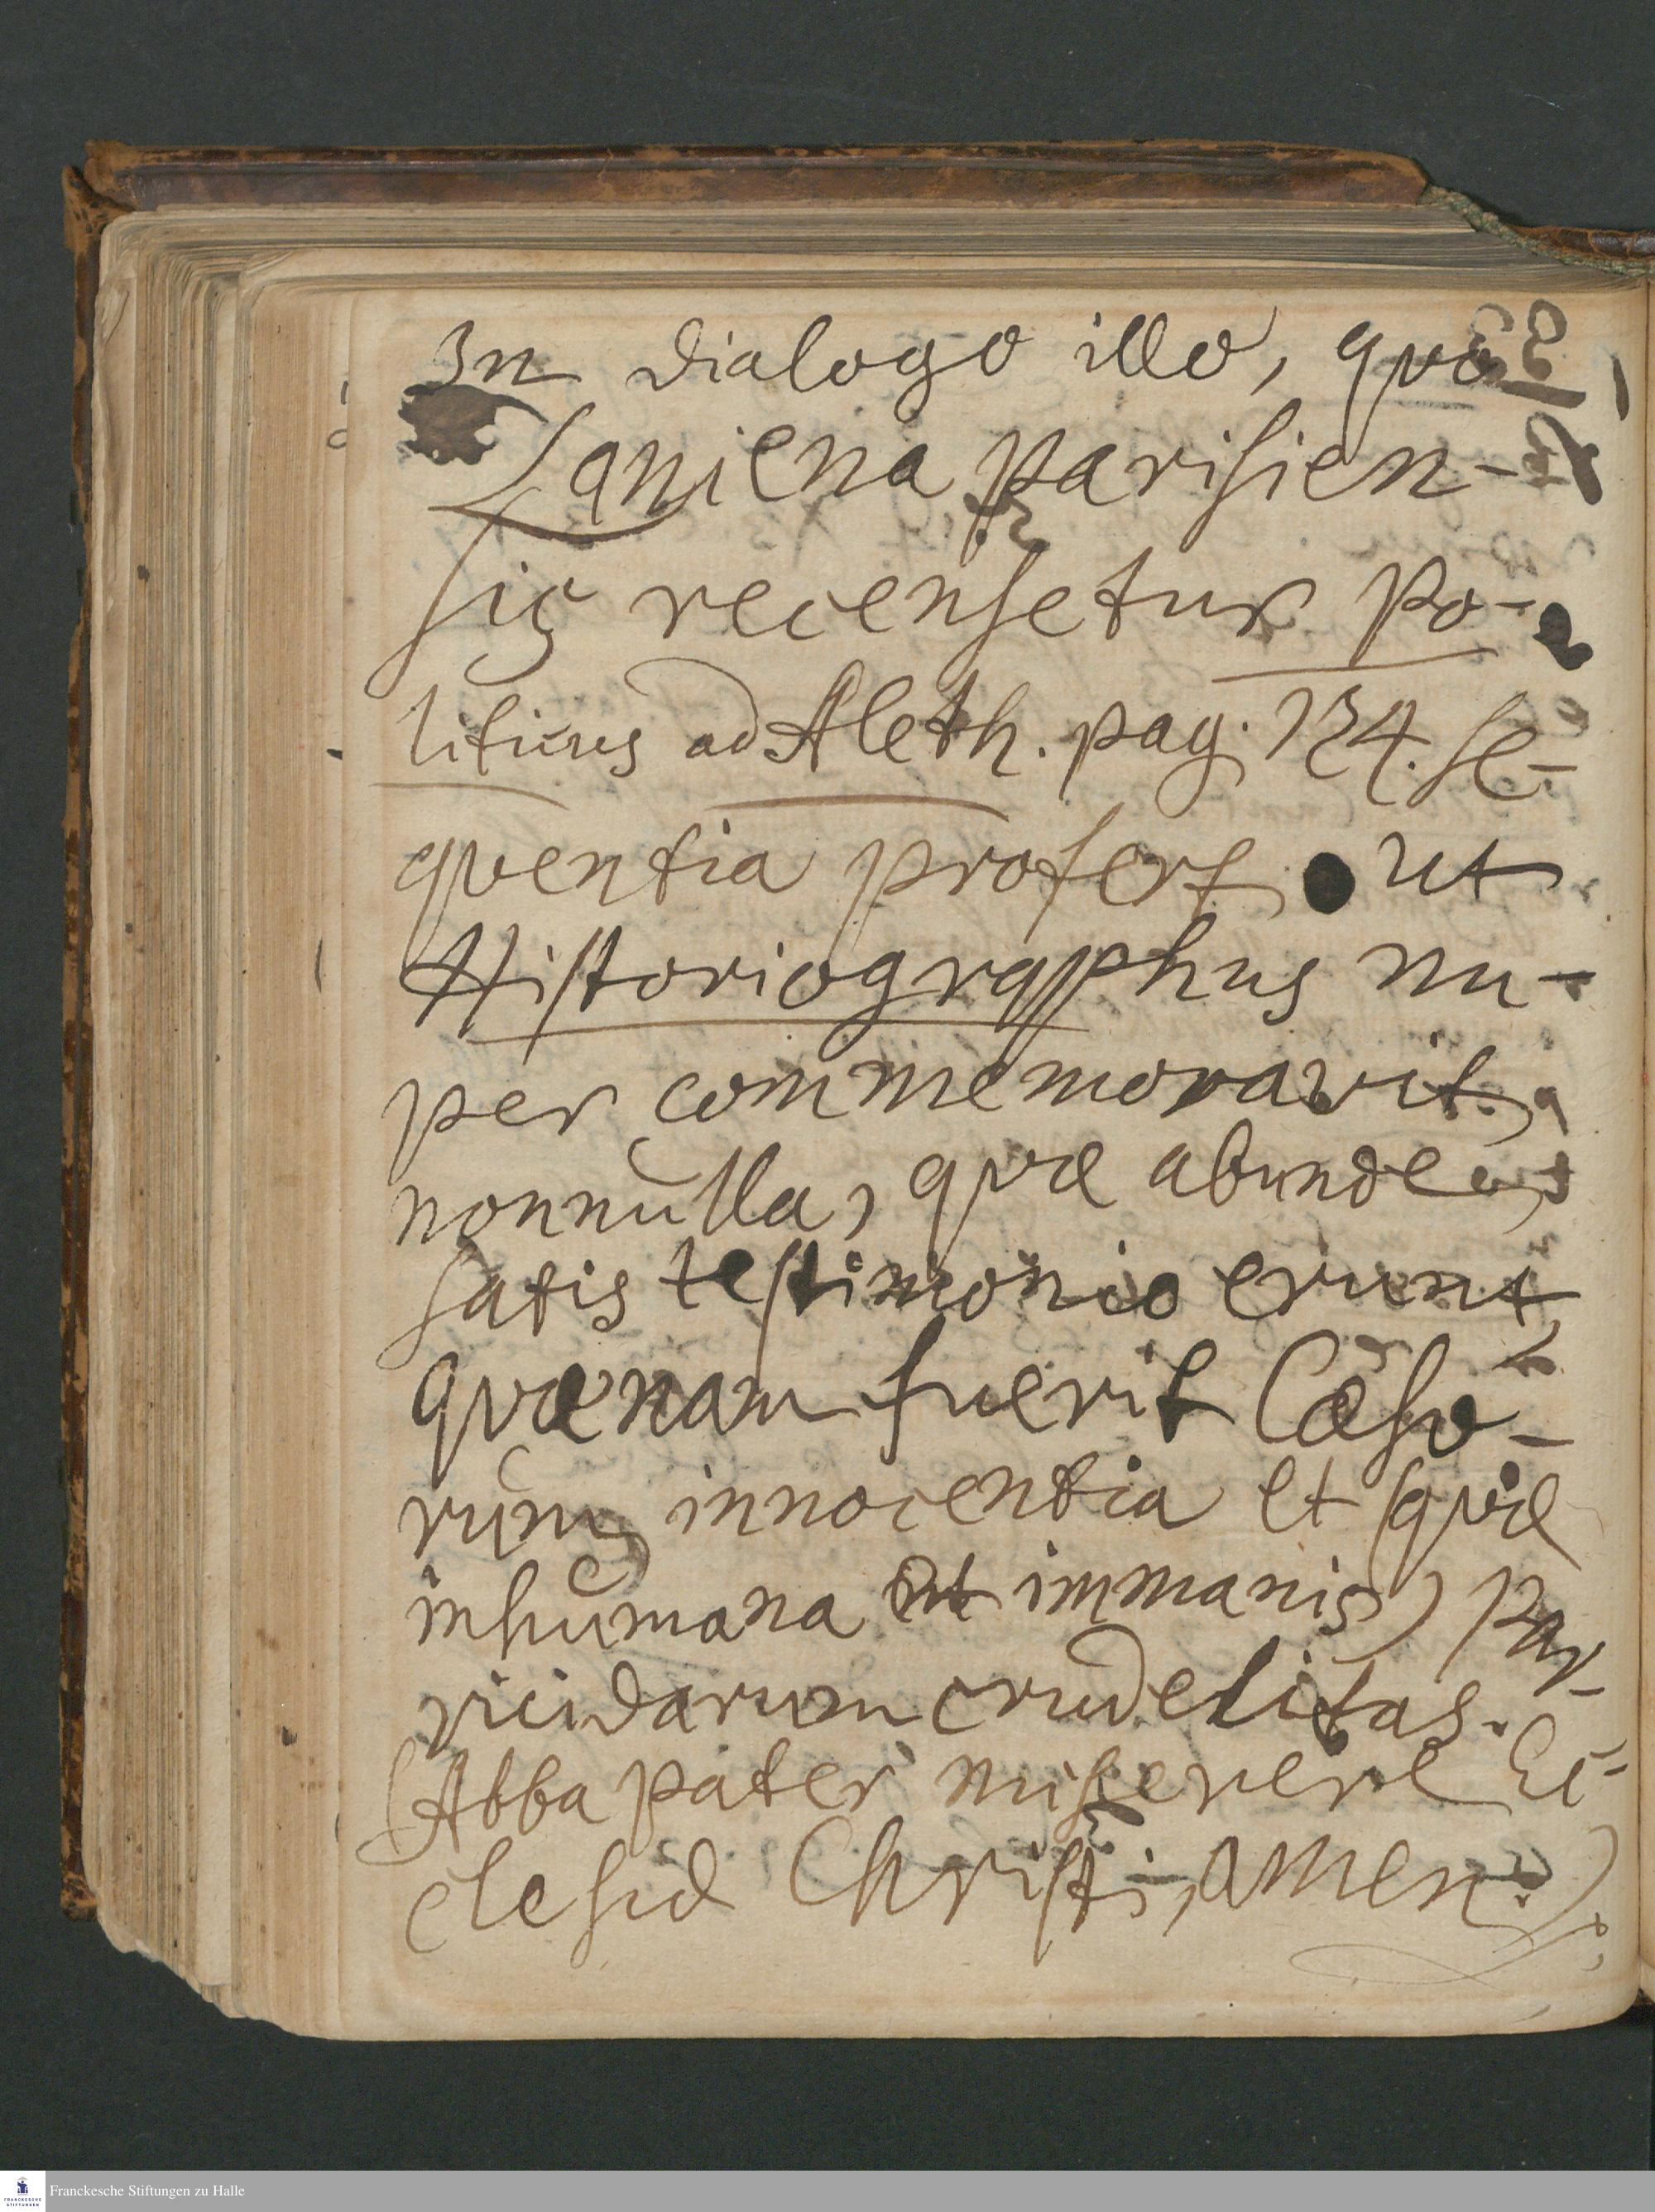 In dialogo illo, quo
Laniena parisien-
sis recensetur po-
liticus ad Aleth. pag. 134. se-
quentia profert, ut
Historiographus nu-
per commemoravit,
nonnulla, quæ abunde
satis testimonio erunt
quænam fuerit Cæso-
rum innocentia et quæ
inhumana et immanis par-
ricidarum crudelitas.
(Abba pater miserere Ec-
clesiæ Christi, amen)
FRANCKESCHE STIFTUNGEN
Franckesche Stiftungen zu Halle